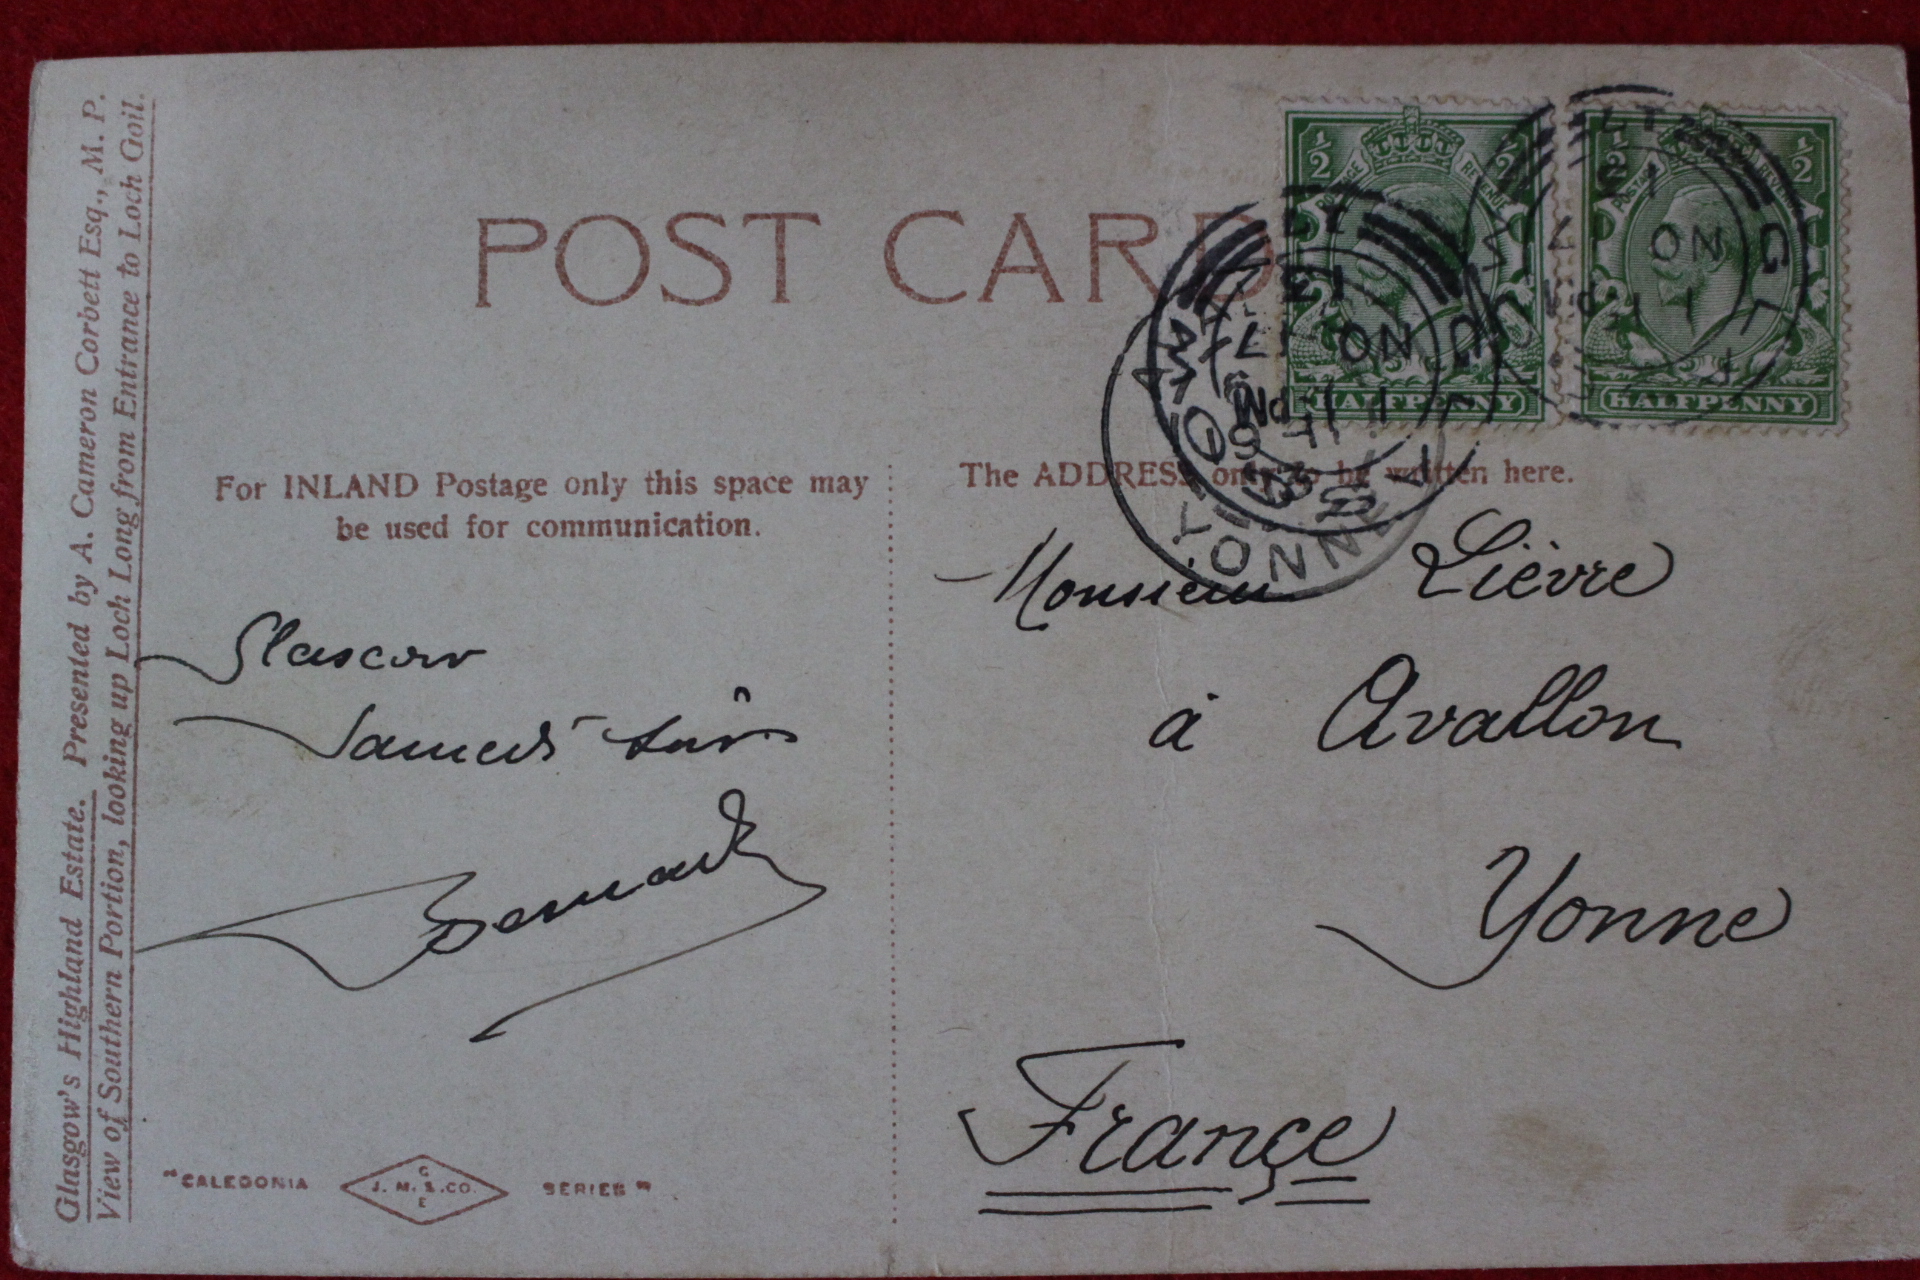 Glasgow's Highland Estate. Presented by A. Cameron Corbett Esq., M. P.
View of Southern Portion, looking up Loch Long from Entrance to Loch Goil.
POST CARD
½ ½
POSTAGE REVENUE
HALFPENNY
½ ½
POSTAGE REVENUE
HALFPENNY
NO 17
11 PM
13
NO 17
11 PM
13
YONNE
For INLAND Postage only this space may
be used for communication.
The ADDRESS only to be written here.
Glascow
Samedi soir
Monsieur Lièvre
à Avallon
Yonne
France
"CALEDONIA
G
J. M. & CO.
E
SERIES"